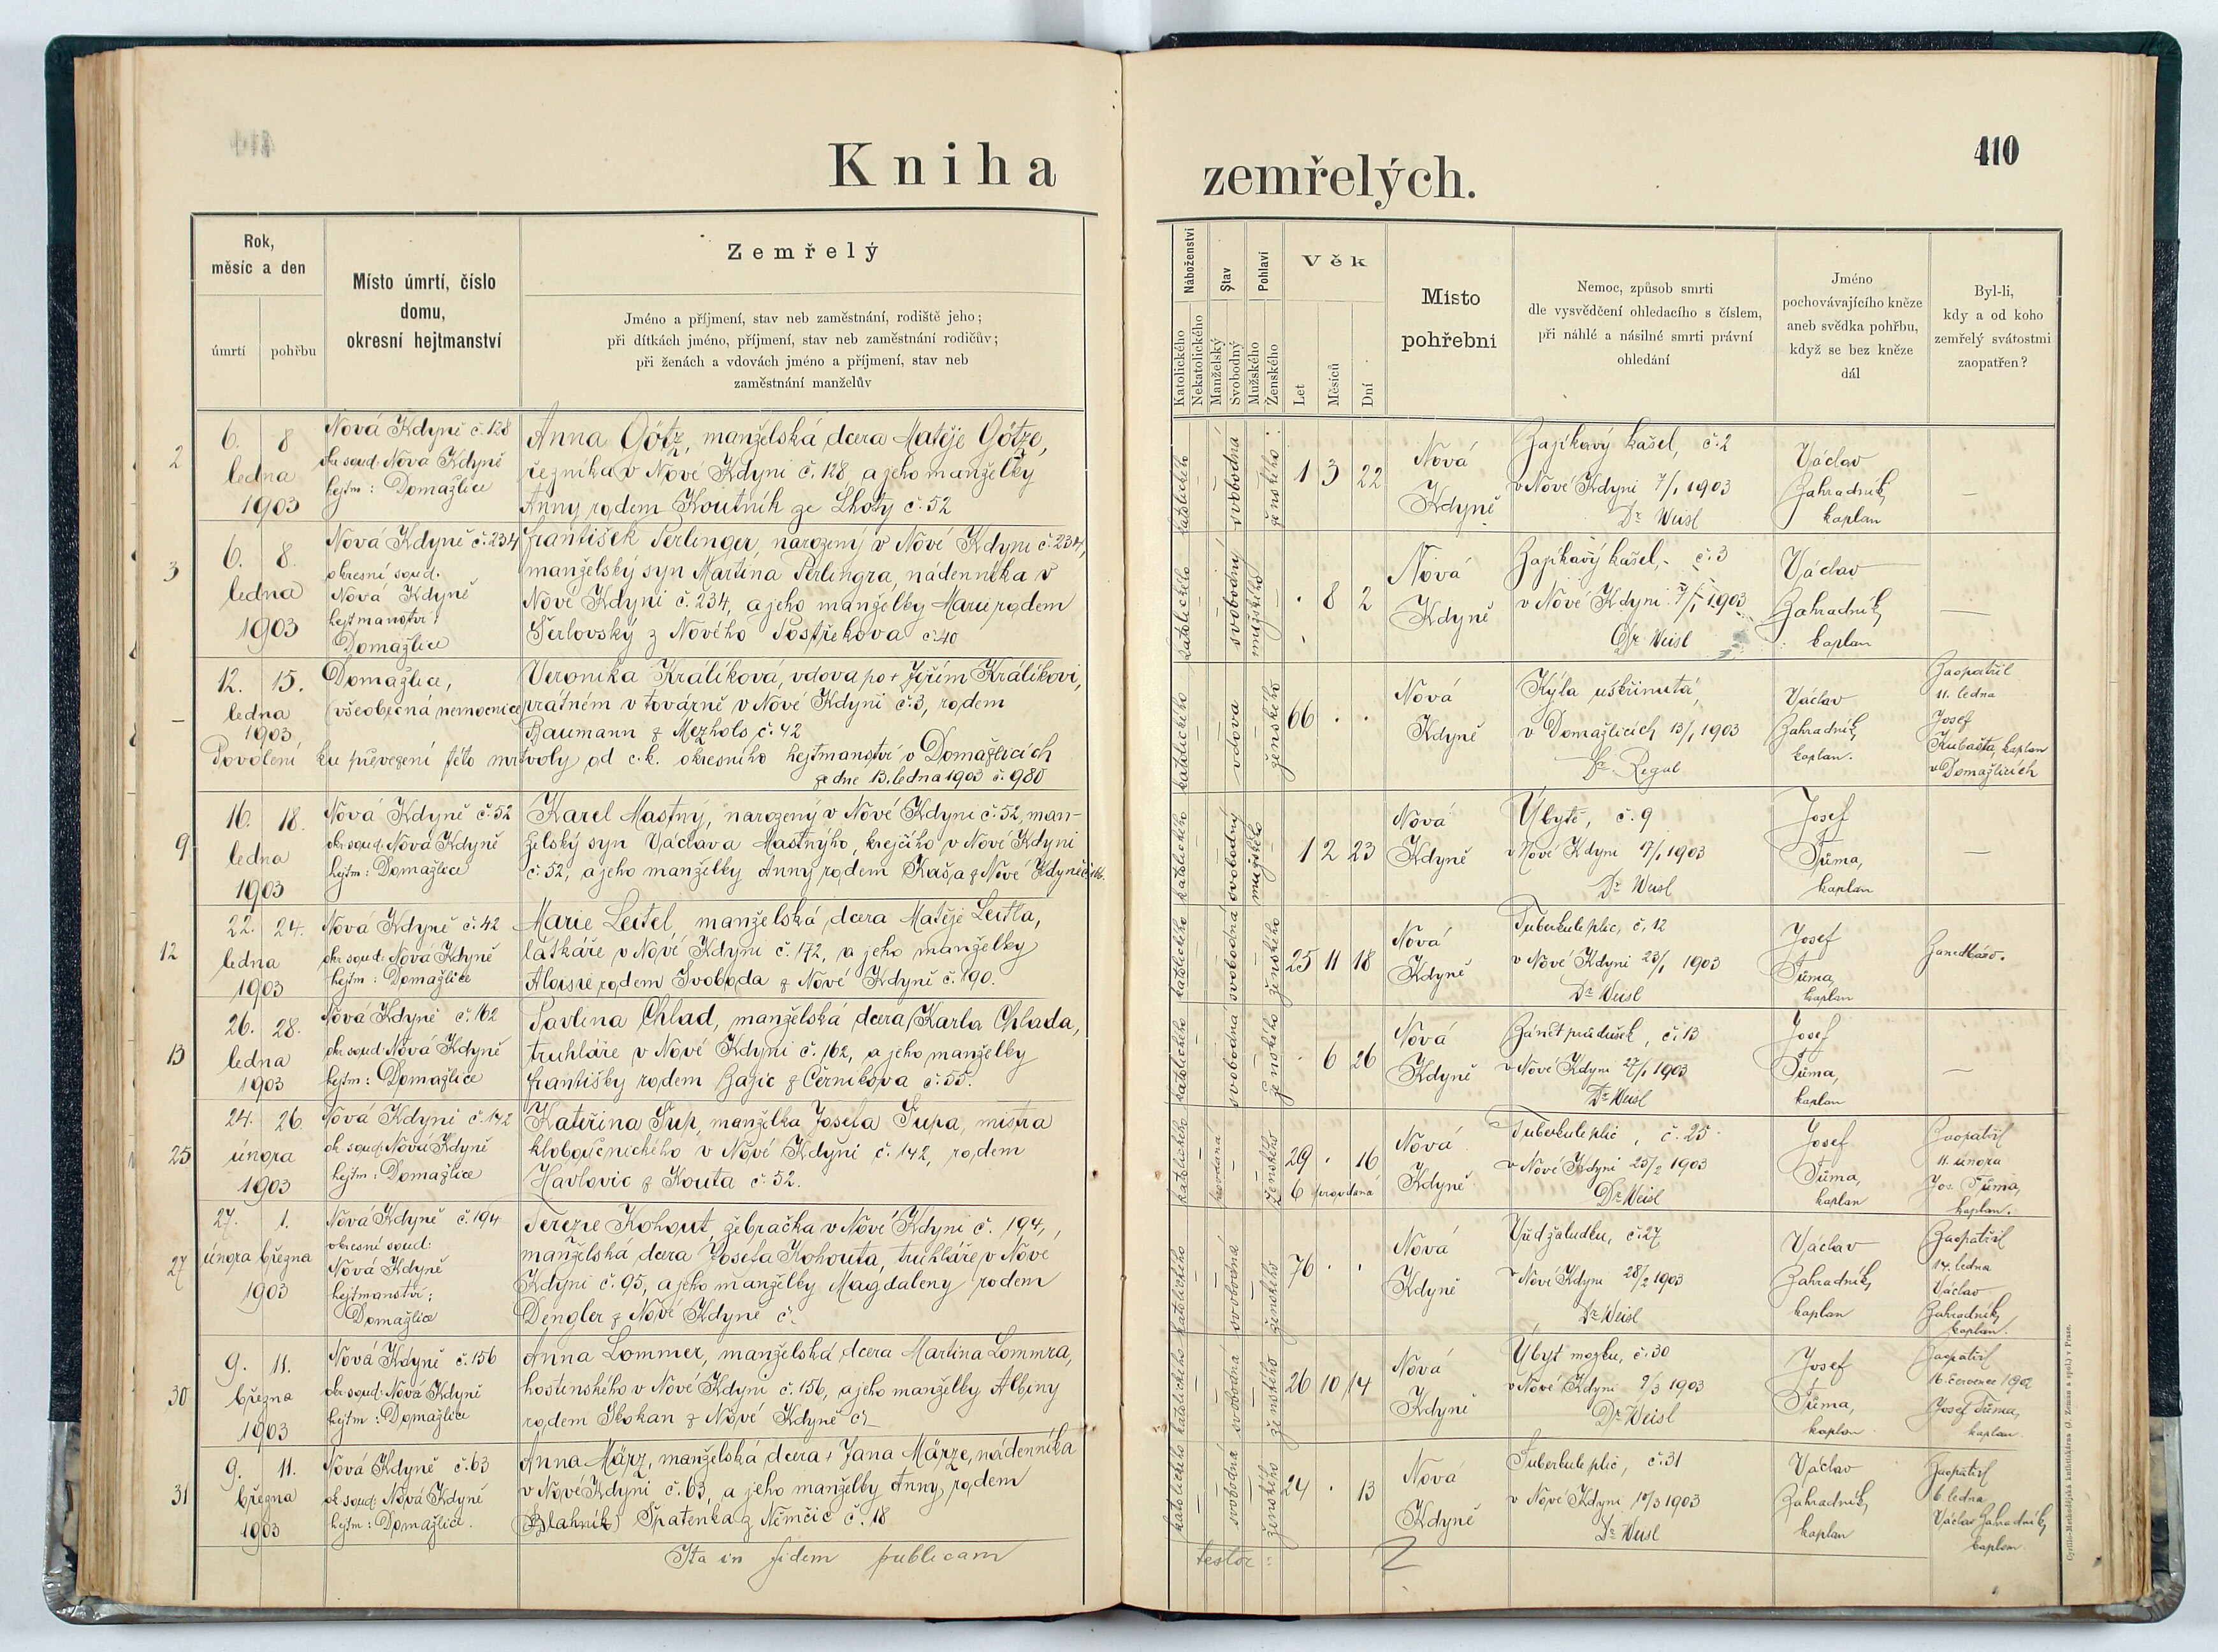 Kniha zemřelých.
410
Rok,
měsíc a den
úmrtí
pohřbu
Místo úmrtí, číslo
domu,
okresní hejtmanství
Zemřelý
Jméno a příjmení, stav neb zaměstnání, rodiště jeho;
při dítkách jméno, příjmení, stav neb zaměstnání rodičův;
při ženách a vdovách jméno a příjmení, stav neb
zaměstnání manželův
Náboženství
Katolického
Nekatolického
Stav
Manželský
Svobodný
Pohlaví
Mužského
Ženského
Věk
Let
Měsíců
Dní
Místo
pohřební
Nemoc, způsob smrti
dle vysvědčení ohledacího s číslem,
při náhlé a násilné smrti právní
ohledání
Jméno
pochovávajícího kněze
aneb svědka pohřbu,
když se bez kněze
dál
Byl-li,
kdy a od koho
zemřelý svátostmi
zaopatřen?
2
6. 8
ledna
1903
Nová Kdyně č. 128
okr. soud: Nová Kdyně
hejtm: Domažlice
Anna Götz, manželská dcera Matěje Götze,
řezníka v Nové Kdyni č. 128, a jeho manželky
Anny rodem Koutník ze Lhoty č. 52
katolického
svobodná
ženského
1 3 22
Nová
Kdyně
Zajíkavý kašel, č. 2
v Nové Kdyni 7/1 1903
Dr Weisl
Václav
Zahradník,
kaplan
—
3
6. 8.
ledna
1903
Nová Kdyně č. 234
okresní soud.
Nová Kdyně
hejtmanství:
Domažlice
František Perlinger, narozený v Nové Kdyni č. 234,
manželský syn Martina Perlingra, nádenníka v
Nové Kdyni č. 234, a jeho manželky Marie rodem
Šerlovský z Nového Postřekova č. 40
katolického
svobodný
mužského
. 8 2
Nová
Kdyně
Zajíkavý kašel, č. 3
v Nové Kdyni 7/1 1903
Dr Weisl
Václav
Zahradník,
kaplan
—
—
12. 15.
ledna
1903
Domažlice,
(všeobecná nemocnice)
Veronika Králíková, vdova po + Jiřím Králíkovi,
vrátném v továrně v Nové Kdyni č. 3, rodem
Baumann z Mezhols č. 42
Povolení ku převezení této mrtvoly od c. k. okresního hejtmanství v Domažlicích
ze dne 13. ledna 1903 č. 980
katolického
vdova
ženského
66 . .
Nová
Kdyně
Kýla uskřinutá,
v Domažlicích 13/1 1903
Dr. Regal
Václav
Zahradník,
kaplan.
Zaopatřil
11. ledna
Josef
Kubašta, kaplan
v Domažlicích
9
16. 18.
ledna
1903
Nová Kdyně č. 52
okr. soud: Nová Kdyně
hejtm: Domažlice
Karel Mastný, narozený v Nové Kdyni č. 52, man-
želský syn Václava Mastnýho, krejčího v Nové Kdyni
č. 52, a jeho manželky Anny rodem Kaša z Nové Kdyně
katolického
svobodný
mužského
1 2 23
Nová
Kdyně
Úbytě, č. 9
v Nové Kdyni 17/1 1903
Dr Weisl
Josef
Tůma,
kaplan
—
12
22. 24.
ledna
1903
Nová Kdyně č. 42
okr. soud: Nová Kdyně
hejtm: Domažlice
Marie Leitel, manželská dcera Matěje Leitla,
látkáře v Nové Kdyni č. 172, a jeho manželky
Aloisie rodem Svoboda z Nové Kdyně č. 190.
katolického
svobodná
ženského
25 11 18
Nová
Kdyně
Tuberkule plic, č. 12
v Nové Kdyni 23/1 1903
Dr Weisl
Josef
Tůma,
kaplan
Zanedbáno.
13
26. 28.
ledna
1903
Nová Kdyně č. 162
okr. soud: Nová Kdyně
hejtm: Domažlice
Pavlina Chlad, manželská dcera Karla Chlada,
truhláře v Nové Kdyni č. 162, a jeho manželky
Františky rodem Zazic z Černíkova č. 55.
katolického
svobodná
ženského
. 6 26
Nová
Kdyně
Zánět průdušek, č. 13
v Nové Kdyni 27/1 1903
Dr Weisl
Josef
Tůma,
kaplan
—
25
24. 26
února
1903
Nová Kdyně č. 142
ok. soud: Nová Kdyně
hejtm: Domažlice
Kateřina Šup, manželka Josefa Šupa, mistra
kloboučnického v Nové Kdyni č. 142, rodem
Havlovic z Kouta č. 52.
katolického
provdaná
ženského
29 . 16
6 provdaná
Nová
Kdyně
Tuberkule plic, č. 25
v Nové Kdyni 25/2 1903
Dr Weisl
Josef
Tůma,
kaplan
Zaopatřil
11. února
Jos. Tůma,
kaplan.
27
27. 1.
února března
1903
Nová Kdyně č. 194
okresní soud:
Nová Kdyně
hejtmanství:
Domažlice
Terezie Kohout, žebračka v Nové Kdyni č. 194,
manželská dcera Josefa Kohouta, truhláře v Nové
Kdyni č. 95, a jeho manželky Magdaleny rodem
Dengler z Nové Kdyně č.
katolického
svobodná
ženského
76 . .
Nová
Kdyně
Vřed žaludku, č. 27
v Nové Kdyni 28/2 1903
Dr Weisl
Václav
Zahradník,
kaplan
Zaopatřil
17. ledna
Václav
Zahradník,
kaplan.
30
9. 11.
března
1903
Nová Kdyně č. 156
okr. soud: Nová Kdyně
hejtm: Domažlice
Anna Lommer, manželská dcera Martina Lommra,
hostinského v Nové Kdyni č. 156, a jeho manželky Albiny
rodem Skokan z Nové Kdyně č. —
katolického
svobodná
ženského
26 10 14
Nová
Kdyně
Úbyt mozku, č. 30
v Nové Kdyni 9/3 1903
Dr Weisl
Josef
Tůma,
kaplan
Zaopatřil
16. července 1902
Josef Tůma,
kaplan
31
9. 11.
března
1903
Nová Kdyně č. 63
ok. soud: Nová Kdyně
hejtm: Domažlice.
Anna März, manželská dcera + Jana Märze, nádenníka
v Nové Kdyni č. 63, a jeho manželky Anny, rodem
(Blahník) Špatenka z Němčic č. 18
katolického
svobodná
ženského
24 . 13
Nová
Kdyně
Tuberkule plic, č. 31
v Nové Kdyni 10/3 1903
Dr Weisl
Václav
Zahradník,
kaplan
Zaopatřil
6. ledna
Václav Zahradník,
kaplan
Ita in fidem publicam testor:
Cyrillo-Methodějská knihtiskárna (J. Zeman a spol.) v Praze.